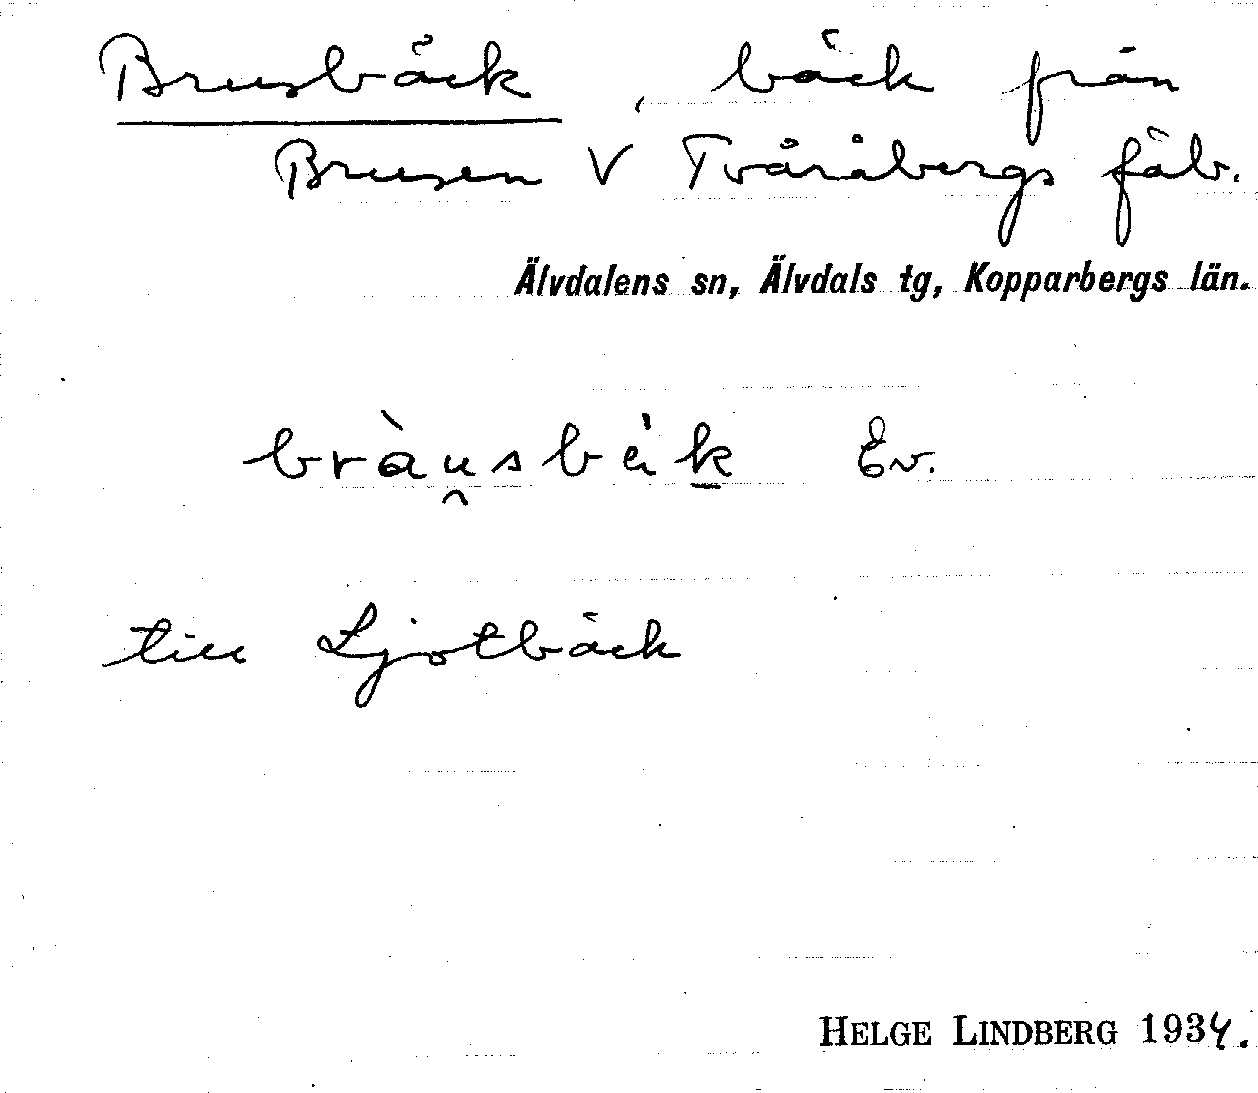 Brusbäck, bäck från
Brusen V Tvåråbergs fäb.
Älvdalens sn, Älvdals tg, Kopparbergs län.
bràu̯sbèk Ev.
till Ljotbäck
HELGE LINDBERG 1934.